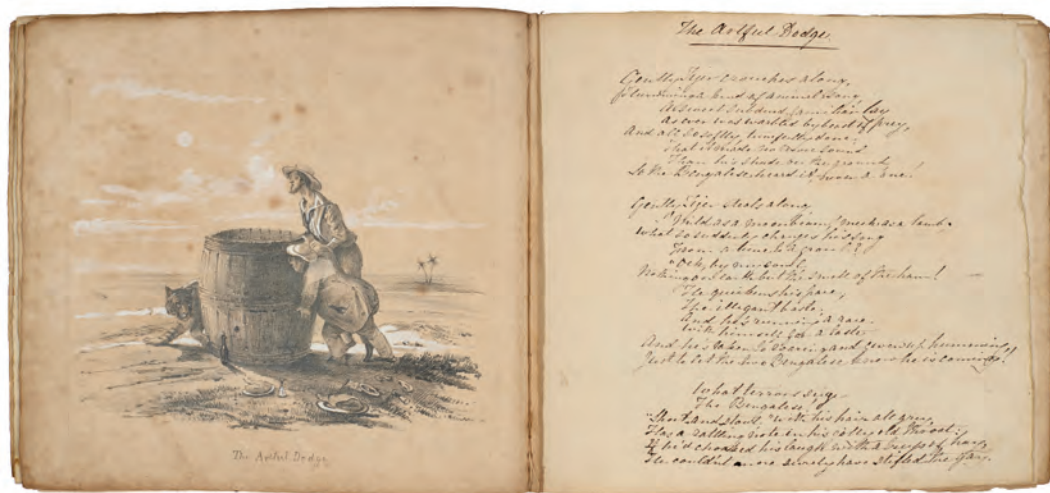 The Artful Dodge
The Artful Dodge.
Gently Tiger crouches along,
a kind of animal song
As sweet subdued familiar lay
As ever was warbled by beast of prey,
And all so softly tunefully done
That it made no more sound
Than his shade on the ground
So the Bengalese heard it never a one!
Gently Tiger steals along
"Mild as a moonbeam" meek as a lamb
What so suddenly changes his song
From a tune to a growl?
"Och, by my soul!
Nothing on Earth but the smell of the ham!
He quickens his pace,
The illegant baste,
And he's running a race
With himself for a taste
And he's taken to roaring and given up humming
Just to let the two Bengalese know he is coming!
What terrors seize
The Bengalese!
"Short and Stout" with his hair all grey
Has a rattling note in his
If he'd choked his laugh with a of hay,
He couldn't more surely have stifled the